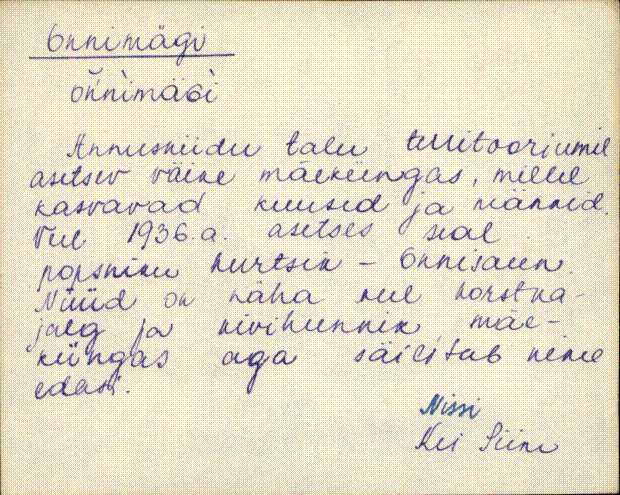 Õnnimägi
õnnimäɢi
Annusniidu talu territooriumil
asetsev väike mäeküngas, millel
kasvavad kuused ja männid.
Veel 1936.a. asetses seal
popsniku hurtsik - Õnnisaun.
Nüüd on näha veel korstna-
jalg ja kivihunnik mäe-
küngas aga säilitab nime
edasi.
Nissi
Siim